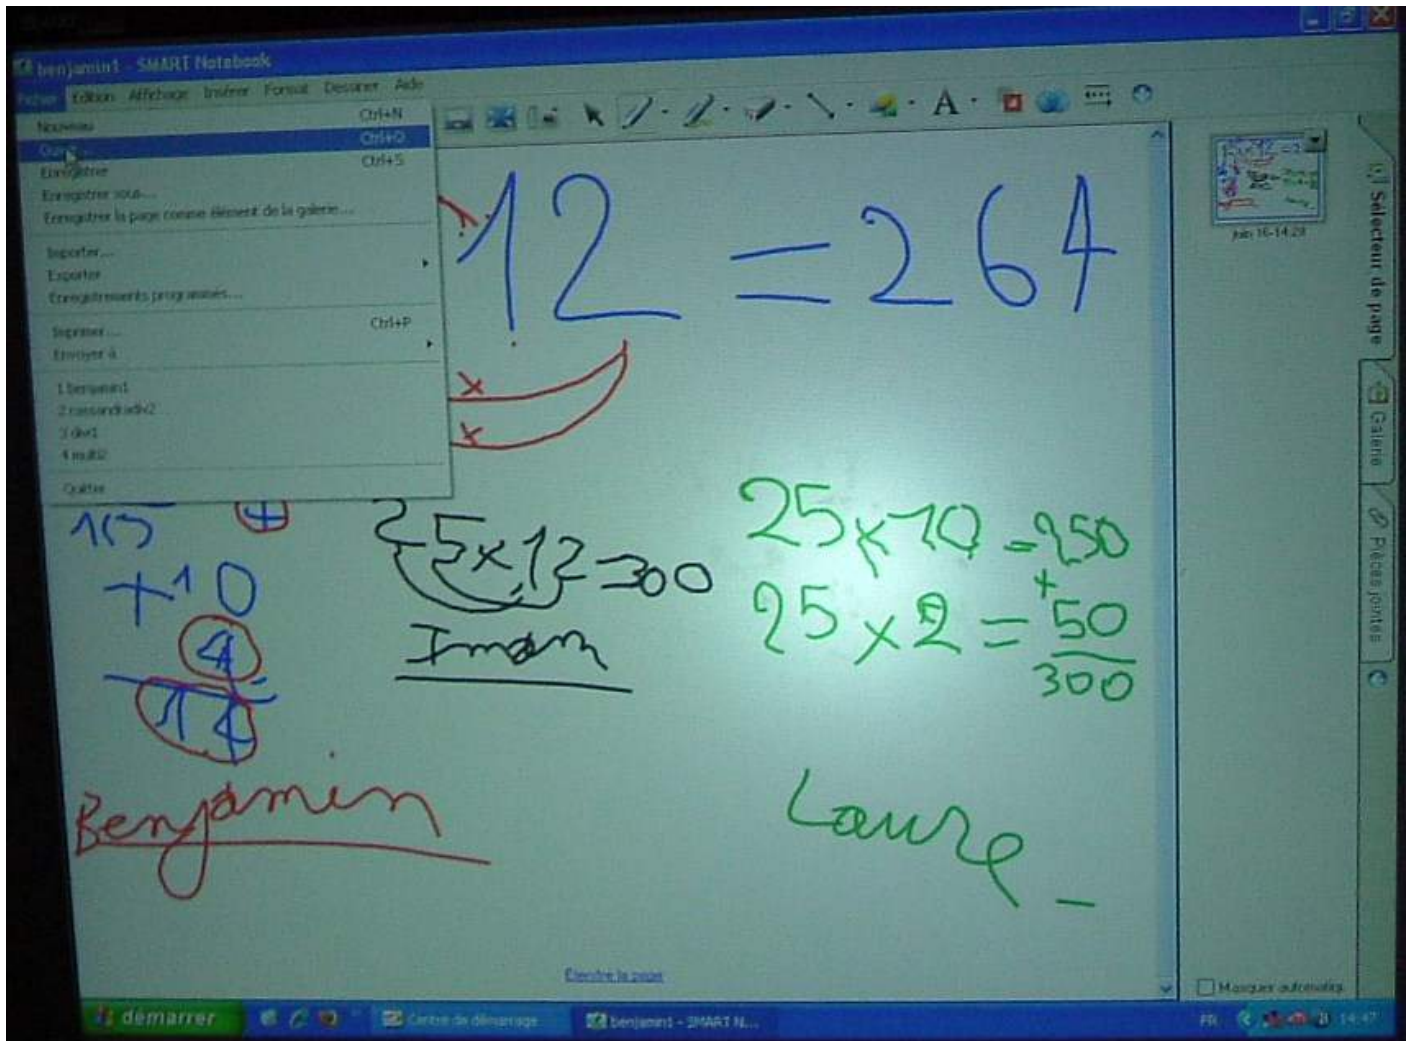 benjamin1 - SMART Notebook
Fichier Edition Affichage Insérer Format Dessiner Aide
Nouveau Ctrl+N
Ouvrir... Ctrl+O
Enregistrer Ctrl+S
Enregistrer sous...
Enregistrer la page comme élément de la galerie...
Importer...
Exporter
Enregistrements programmés...
Imprimer... Ctrl+P
Envoyer à
1 benjamin1
2 cassandradiv2
3 div1
4 multi2
Quitter
12 = 264
x
x
+
25x12=300
Imam
+10
4
14
Benjamin
25x10=250
+
25x2=50
300
Laure
Étendre la page
juin 16-14:28
Sélecteur de page
Galerie
Pièces jointes
Masquer automatiq.
démarrer
Centre de démarrage
benjamin1 - SMART N...
FR
14:47